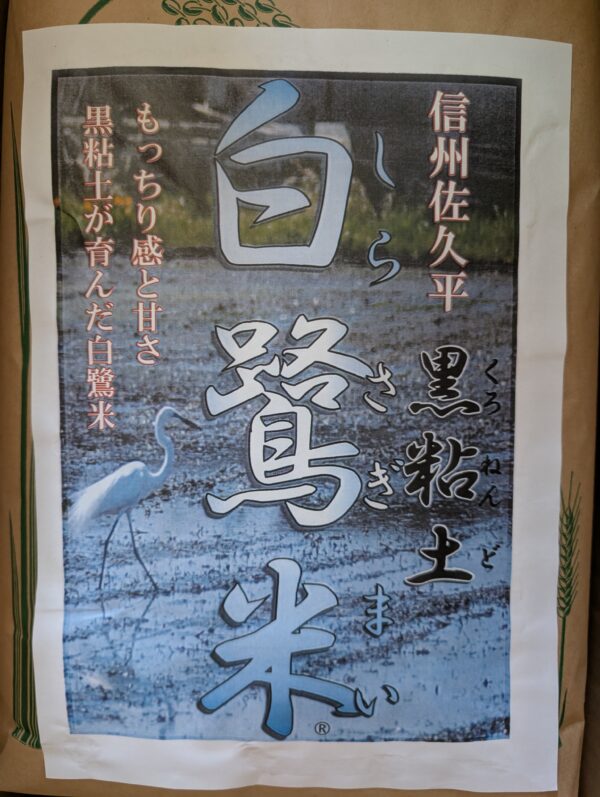 信州佐久平
黒粘土
くろねんど
白鷺米
しらさぎまい
®
もっちり感と甘さ
黒粘土が育んだ白鷺米